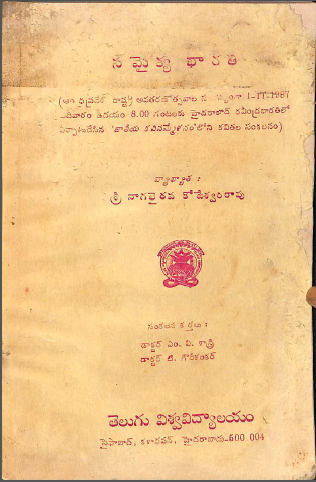 సమైక్య భారతి
(ఆంధ్రప్రదేశ్ రాష్ట్ర అవతరణోత్సవాల 1-11-1987
ఉదయం 8.00 గంటలకు హైదరాబాద్ రవీంద్రభారతిలో
ఏర్పాటుచేసిన 'జాతీయ కవిసమ్మేళనం'లోని కవితల సంకలనం)
వ్యాఖ్యాత :
శ్రీ నాగభైరవ కోటేశ్వరరావు
సంకలన కర్తలు :
డాక్టర్ ఎం. వి. శాస్త్రి
డాక్టర్ టి. గౌరీశంకర్
తెలుగు విశ్వవిద్యాలయం
సైఫాబాద్, కళాభవన్, హైదరాబాదు-500 004